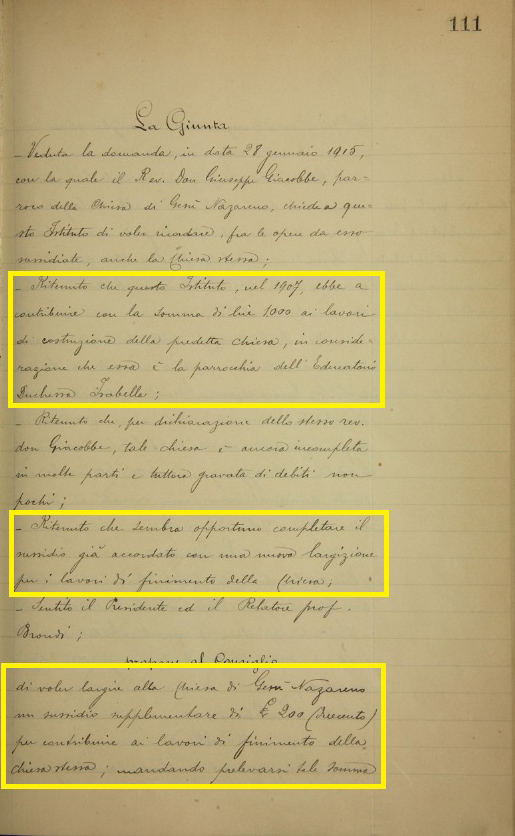 111
La Giunta
- Veduta la domanda, in data 28 gennaio 1915,
con la quale il Rev. Don Giuseppe Giacobbe, par=
roco della Chiesa di Gesù Nazareno, chiede a que=
sto Istituto di voler ricordare, fra le opere da esso
sussidiate, anche la Chiesa stessa;
- Ritenuto che questo Istituto, nel 1907, ebbe a
contribuire con la somma di lire 1000 ai lavori
di costruzione della predetta chiesa, in conside=
razione che essa è la parrocchia dell'Educatorio
Duchessa Isabella;
- Ritenuto che, per dichiarazione dello stesso rev.
don Giacobbe, tale chiesa è ancora incompleta
in molte parti e tuttora gravata di debiti non
pochi;
- Ritenuto che sembra opportuno completare il
sussidio già accordato con una nuova largizione
per i lavori di finimento della Chiesa;
- Sentito il Presidente ed il Relatore prof.
Brondi;
propone al Consiglio
di voler largire alla Chiesa di Gesù Nazareno
un sussidio supplementare di £ 200 (duecento)
per contribuire ai lavori di finimento della
chiesa stessa; mandando prelevarsi tale somma